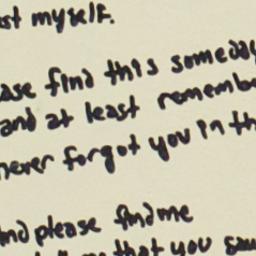 st myself.
ase find this someday
and at least remembe
never forgot you in th
nd please find me
that you saw